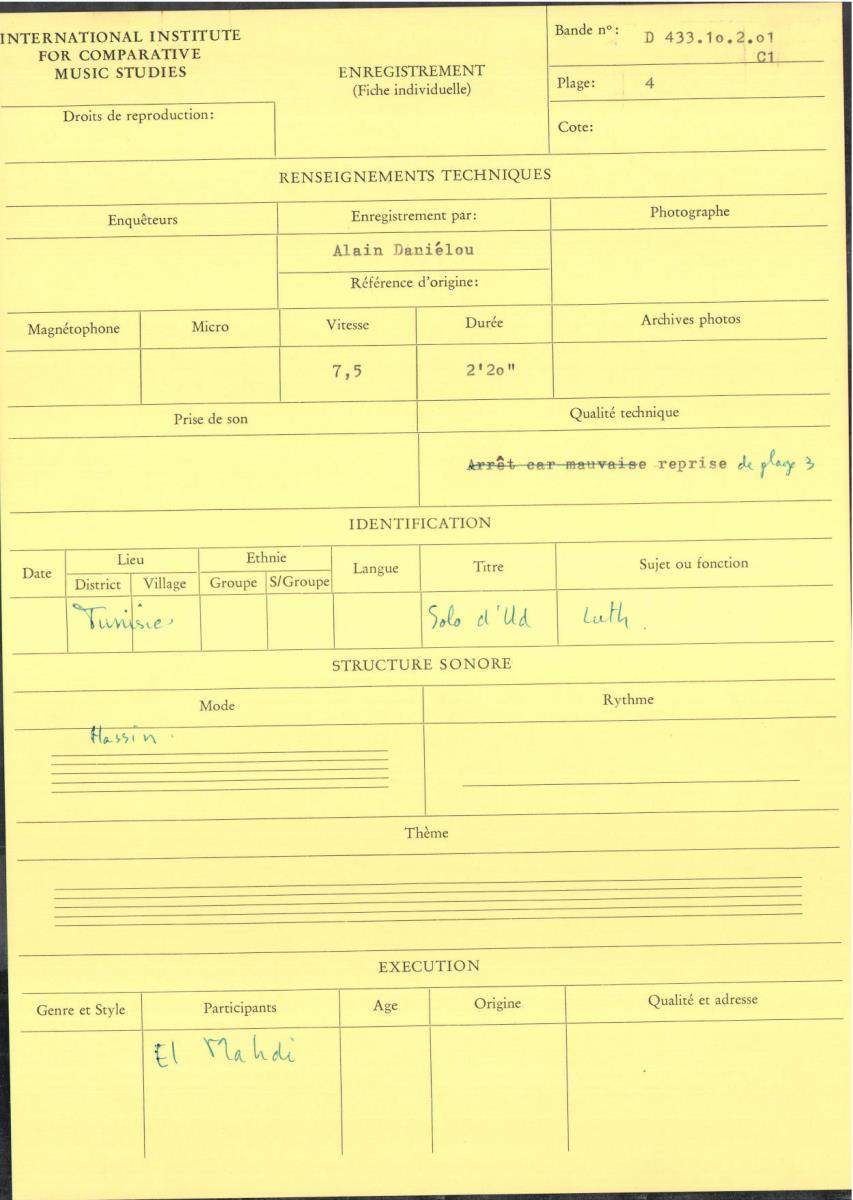 INTERNATIONAL INSTITUTE
FOR COMPARATIVE
MUSIC STUDIES
ENREGISTREMENT
(Fiche individuelle)
Bande nº: D 433.1o.2.o1
C1
Plage: 4
Droits de reproduction:
Cote:
RENSEIGNEMENTS TECHNIQUES
Enquêteurs
Enregistrement par:
Photographe
Alain Daniélou
Référence d'origine:
Magnétophone
Micro
Vitesse
Durée
Archives photos
7,5
2'2o"
Prise de son
Qualité technique
Arrêt car mauvaise reprise de plage 3
IDENTIFICATION
Date
Lieu
Ethnie
Langue
Titre
Sujet ou fonction
District
Village
Groupe
S/Groupe
Tunisie
Solo d'Ud
Luth.
STRUCTURE SONORE
Mode
Rythme
Hassin.
Thème
EXECUTION
Genre et Style
Participants
Age
Origine
Qualité et adresse
El Mahdi